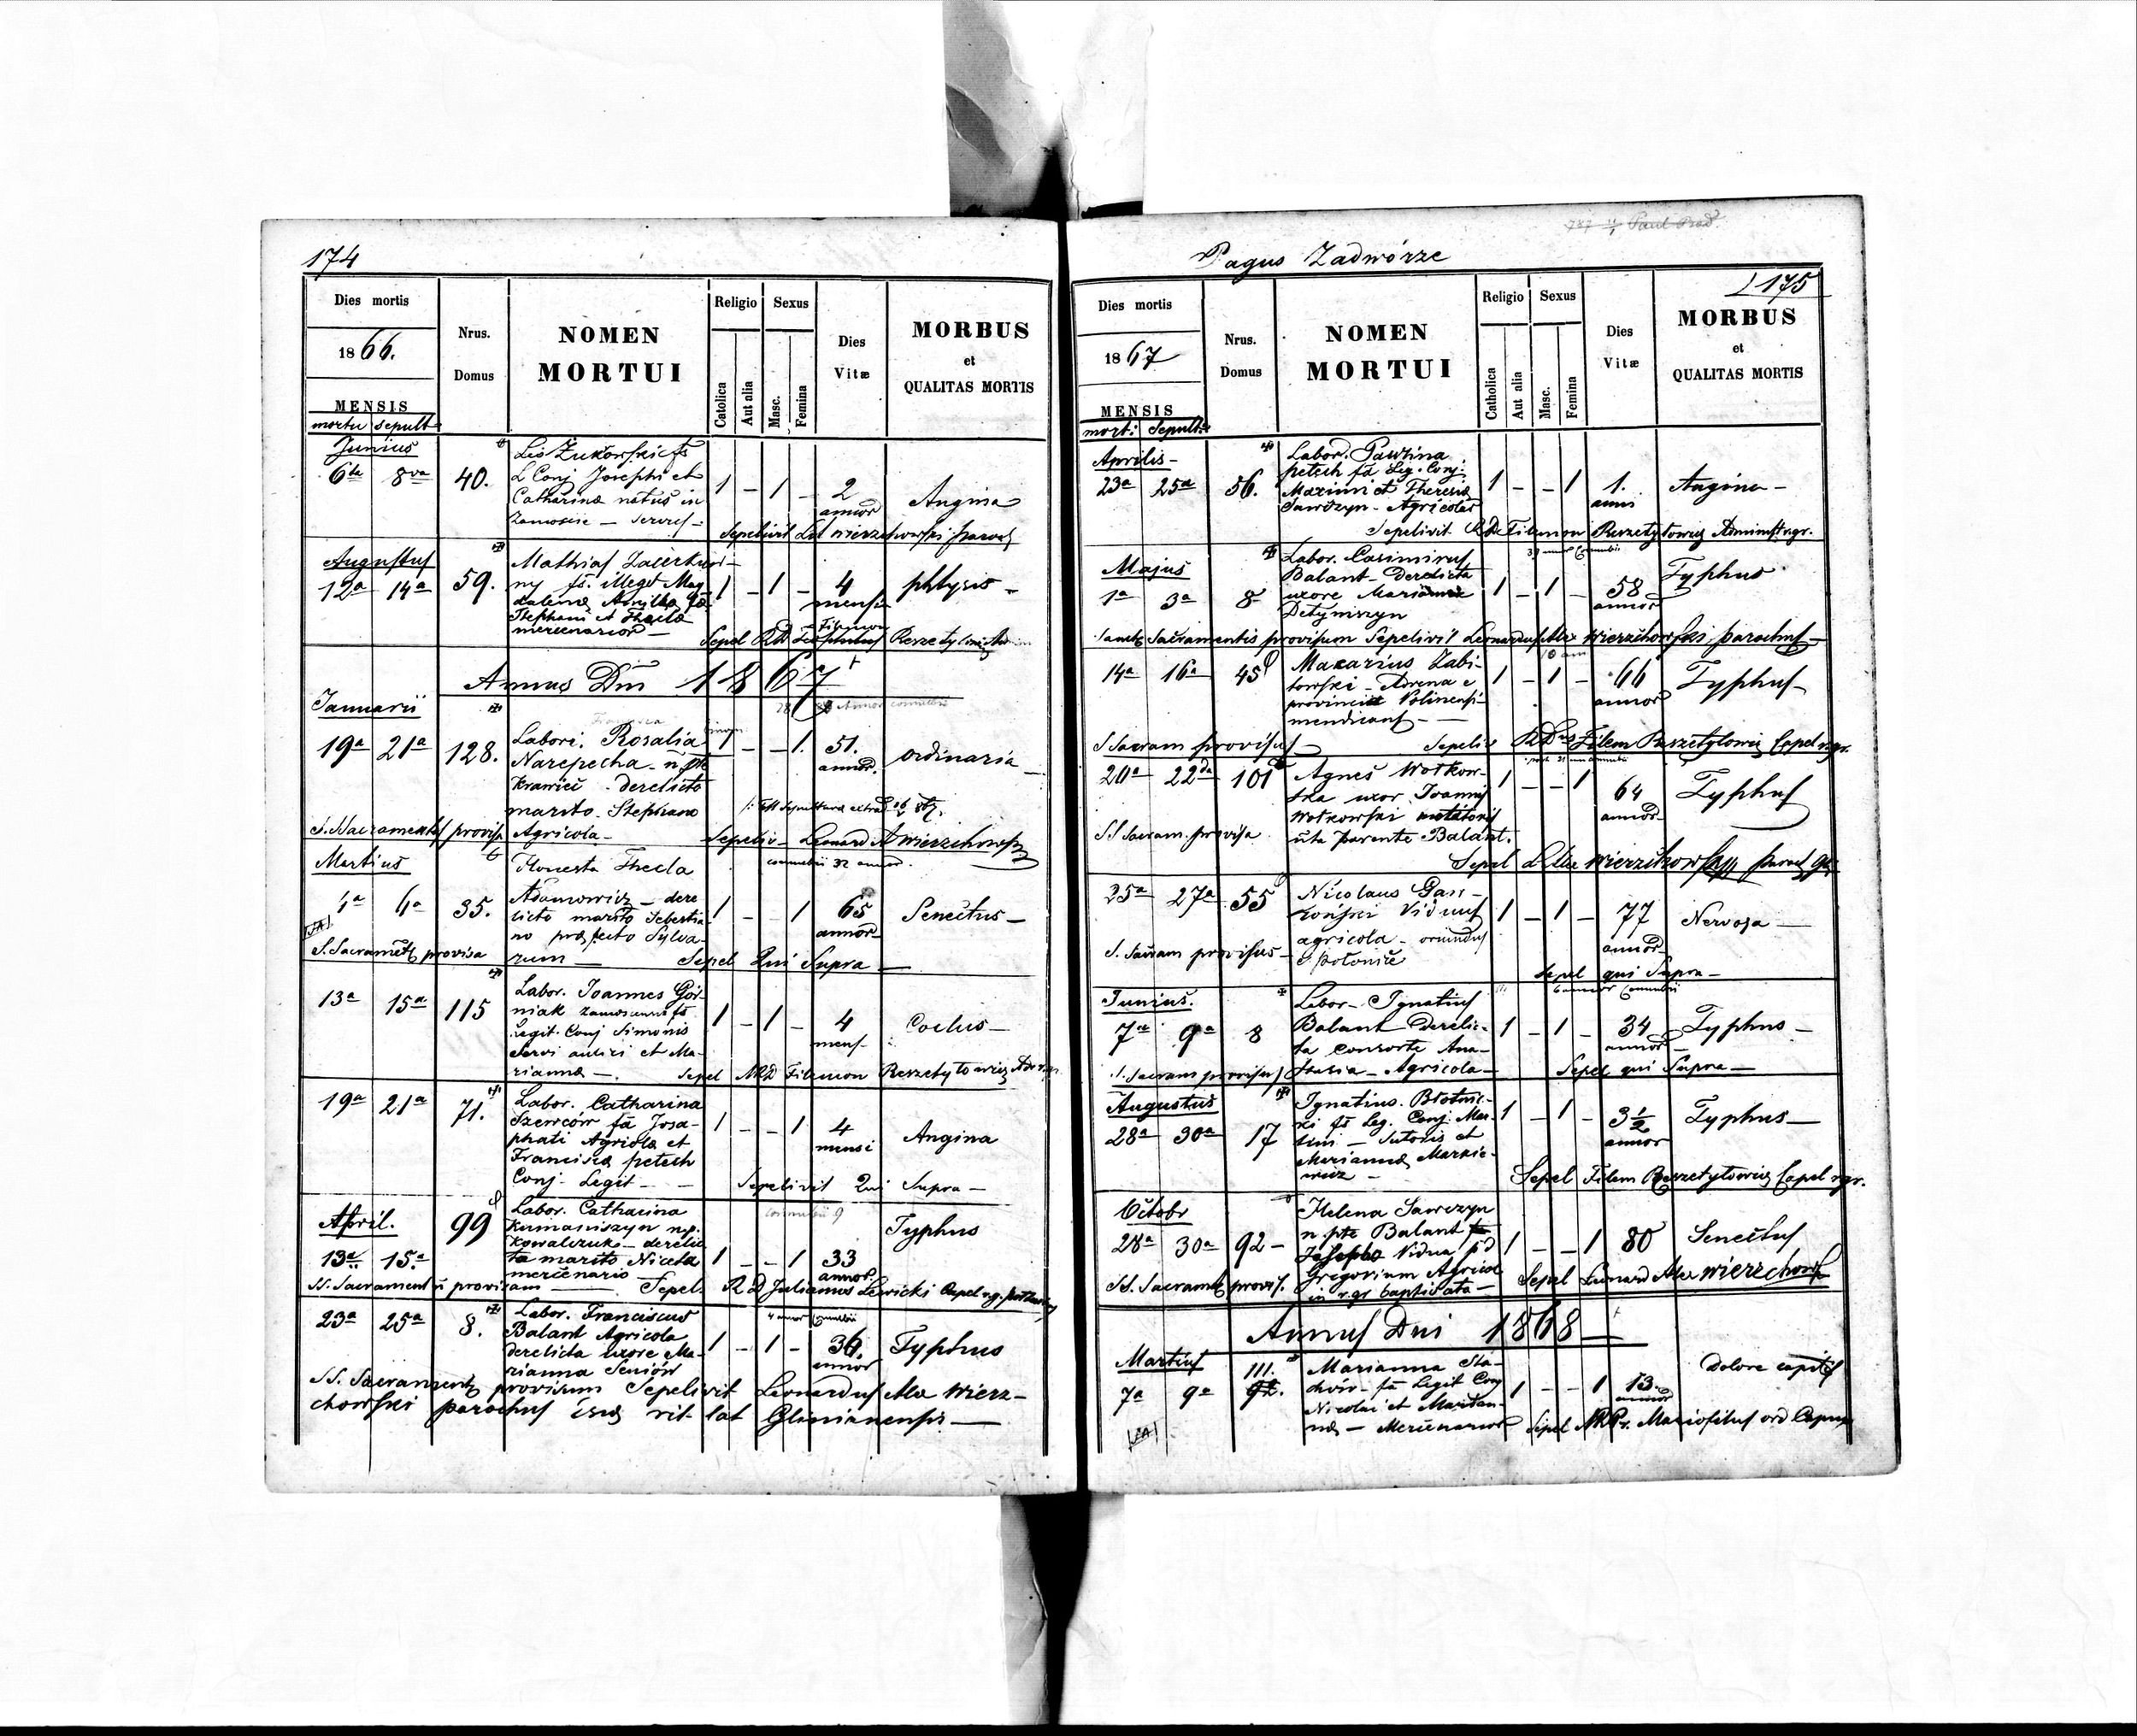 174
Dies mortis
1866.
MENSIS
mortu sepult
Nrus.
Domus
NOMEN
MORTUI
Religio
Catolica
Aut alia
Sexus
Masc.
Femina
Dies
Vitæ
MORBUS
et
QUALITAS MORTIS
Junius
6ta 8va 40.
Leo Zukowski fs
L Conj Josephi et
Catharina natus in
Zamoście
1 - 1 - 2
annor
Angina
Sepelivit Wierzchowski paroch
Augustus
12a 14a 59.
Mathias
ny fs. illegit Mag
dalena
Stephani et Thecla
mercenarior
1 - 1 - 4
mensi
phtysis
Sepel RD Filemon Reszetylowicz
Annus Dni 1867
Januarii
19a 21a 128.
Labori. Rosalia
Narepecha n. pte
Krawieć derelicto
marito Stephano
Agricola
1 - - 1. 51.
annor.
ordinaria
S. Sacramentis provisa
Sepeliv Leonard A Wierzchowski
Martius
connubii 32 annor.
4a 6a 35.
Honesta Thecla
Adamowicz - dere
licto marito Sebestia
no præfecto Sylva-
rum
1 - - 1 65
annor
Senectus
S. Sacrament provisa
Sepel Qui Supra
13a 15a 115
Labor. Joannes Gór-
niak fs
Legit. Conj Simonis
Servi aulici et Ma-
rianna
1 - 1 - 4
mens
Coclus
Sepel MRD Filemon Reszetylowicz
19a 21a 71.
Labor. Catharina
Szewców fa Josa-
phati Agricola et
Francisca petech
Conj. Legit
1 - - 1 4
mensi
Angina
Sepelivit Qui Supra
April.
13a 15a 99
Labor. Catharina
n. p.
Kowalczuk - derelic
ta marito Niceta
mercenario
connubii 9
1 - - 1 33
annor.
Typhus
SS. Sacrament provisam Sepel. RD Julianus Lewicki
23a 25a 8.
Labor. Franciscus
Balant Agricola
derelicta uxore Ma-
rianna Seniów
4 annor connubii
1 - 1 - 36.
annor
Typhus
SS. Sacrament provisum Sepelivit Leonardus Alex Wierz-
chowski parochus rit lat Glinianensis
Pagus Zadwórze
175
Dies mortis
1867
MENSIS
mort: Sepult:
Nrus.
Domus
NOMEN
MORTUI
Religio
Catholica
Aut alia
Sexus
Masc.
Femina
Dies
Vitæ
MORBUS
et
QUALITAS MORTIS
Aprilis
23a 25a 56.
Labor. Pawlina
petech fa Leg. Conj:
Maximi et Theresia
Sawczyn - Agricolar
1 - - 1 1.
anni
Angina
Sepelivit RD Filemon Reszetylowicz Administ r.gr.
Majus
1a 3a 8
Labor. Casimirus
Balant - Derelicta
uxore Marianna
Detyniszyn
1 - 1 - 58
annor
Typhus
Sacramentis provisum Sepelivit Leonardus Alex Wierzchowski parochus
14a 16a 45
Macarius Zabi-
towski
provincia Volinensi
mendicans
1 - 1 - 66
annor
Typhus
S Sacram provisus
Sepeliv RDus Filem Reszetylowicz Capel r.gr.
20a 22da 101
Agnes Wotkow-
ska uxor Joannis
Wotkowski
nata parente Balant.
1 - - 1 64
annor
Typhus
SS Sacram. provisa
Sepel L Alex Wierzchowski paroch
25a 27a 55
Nicolaus
Viduus
agricola - oriundus
1 - 1 - 77
annor
Nervosa
S. Sacram provisus
Sepel qui Supra
Junius.
7a 9a 8
Labor - Ignatius
Balant Derelic-
ta consorte Ana-
stasia - Agricola
6 annor connubii
1 - 1 - 34
annor
Typhus
S. Sacram provisus
Sepel qui Supra
Augustus
28a 30a 17
Ignatius. Błotnic-
ki fs Leg. Conj. Mar-
tini - Sutoris et
Marianna Markie-
wicz
1 - 1 - 3½
annor
Typhus
Sepel Filem Reszetylowicz Capel r.gr.
Octobr
28a 30a 92
Helena Sawczyn
n. pte Balant
Josepho Vidua
Gregorium Agricol
in r.gr baptisata
1 - - 1 80
Senectus
SS. Sacrament provis. Sepel Leonard Alex Wierzchowski
Annus Dni 1868
Martius
7a 9a 111.
92.
Marianna Sta-
chów - fa Legit Conj
Nicolai et Marian-
na - Mercenarior
1 - - 1 13.
annor
Dolore capitis